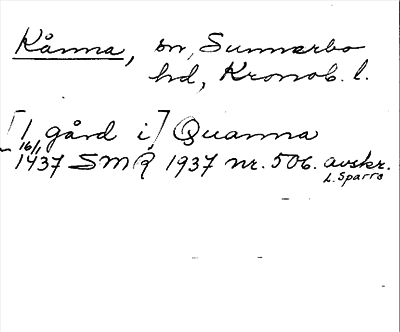 Kånna, sn, Sunnerbo
hd, Kronob. l.
[1 gård i] Quanna
16/1
1437 SMR 1937 nr. 506. avskr.
L. Sparre